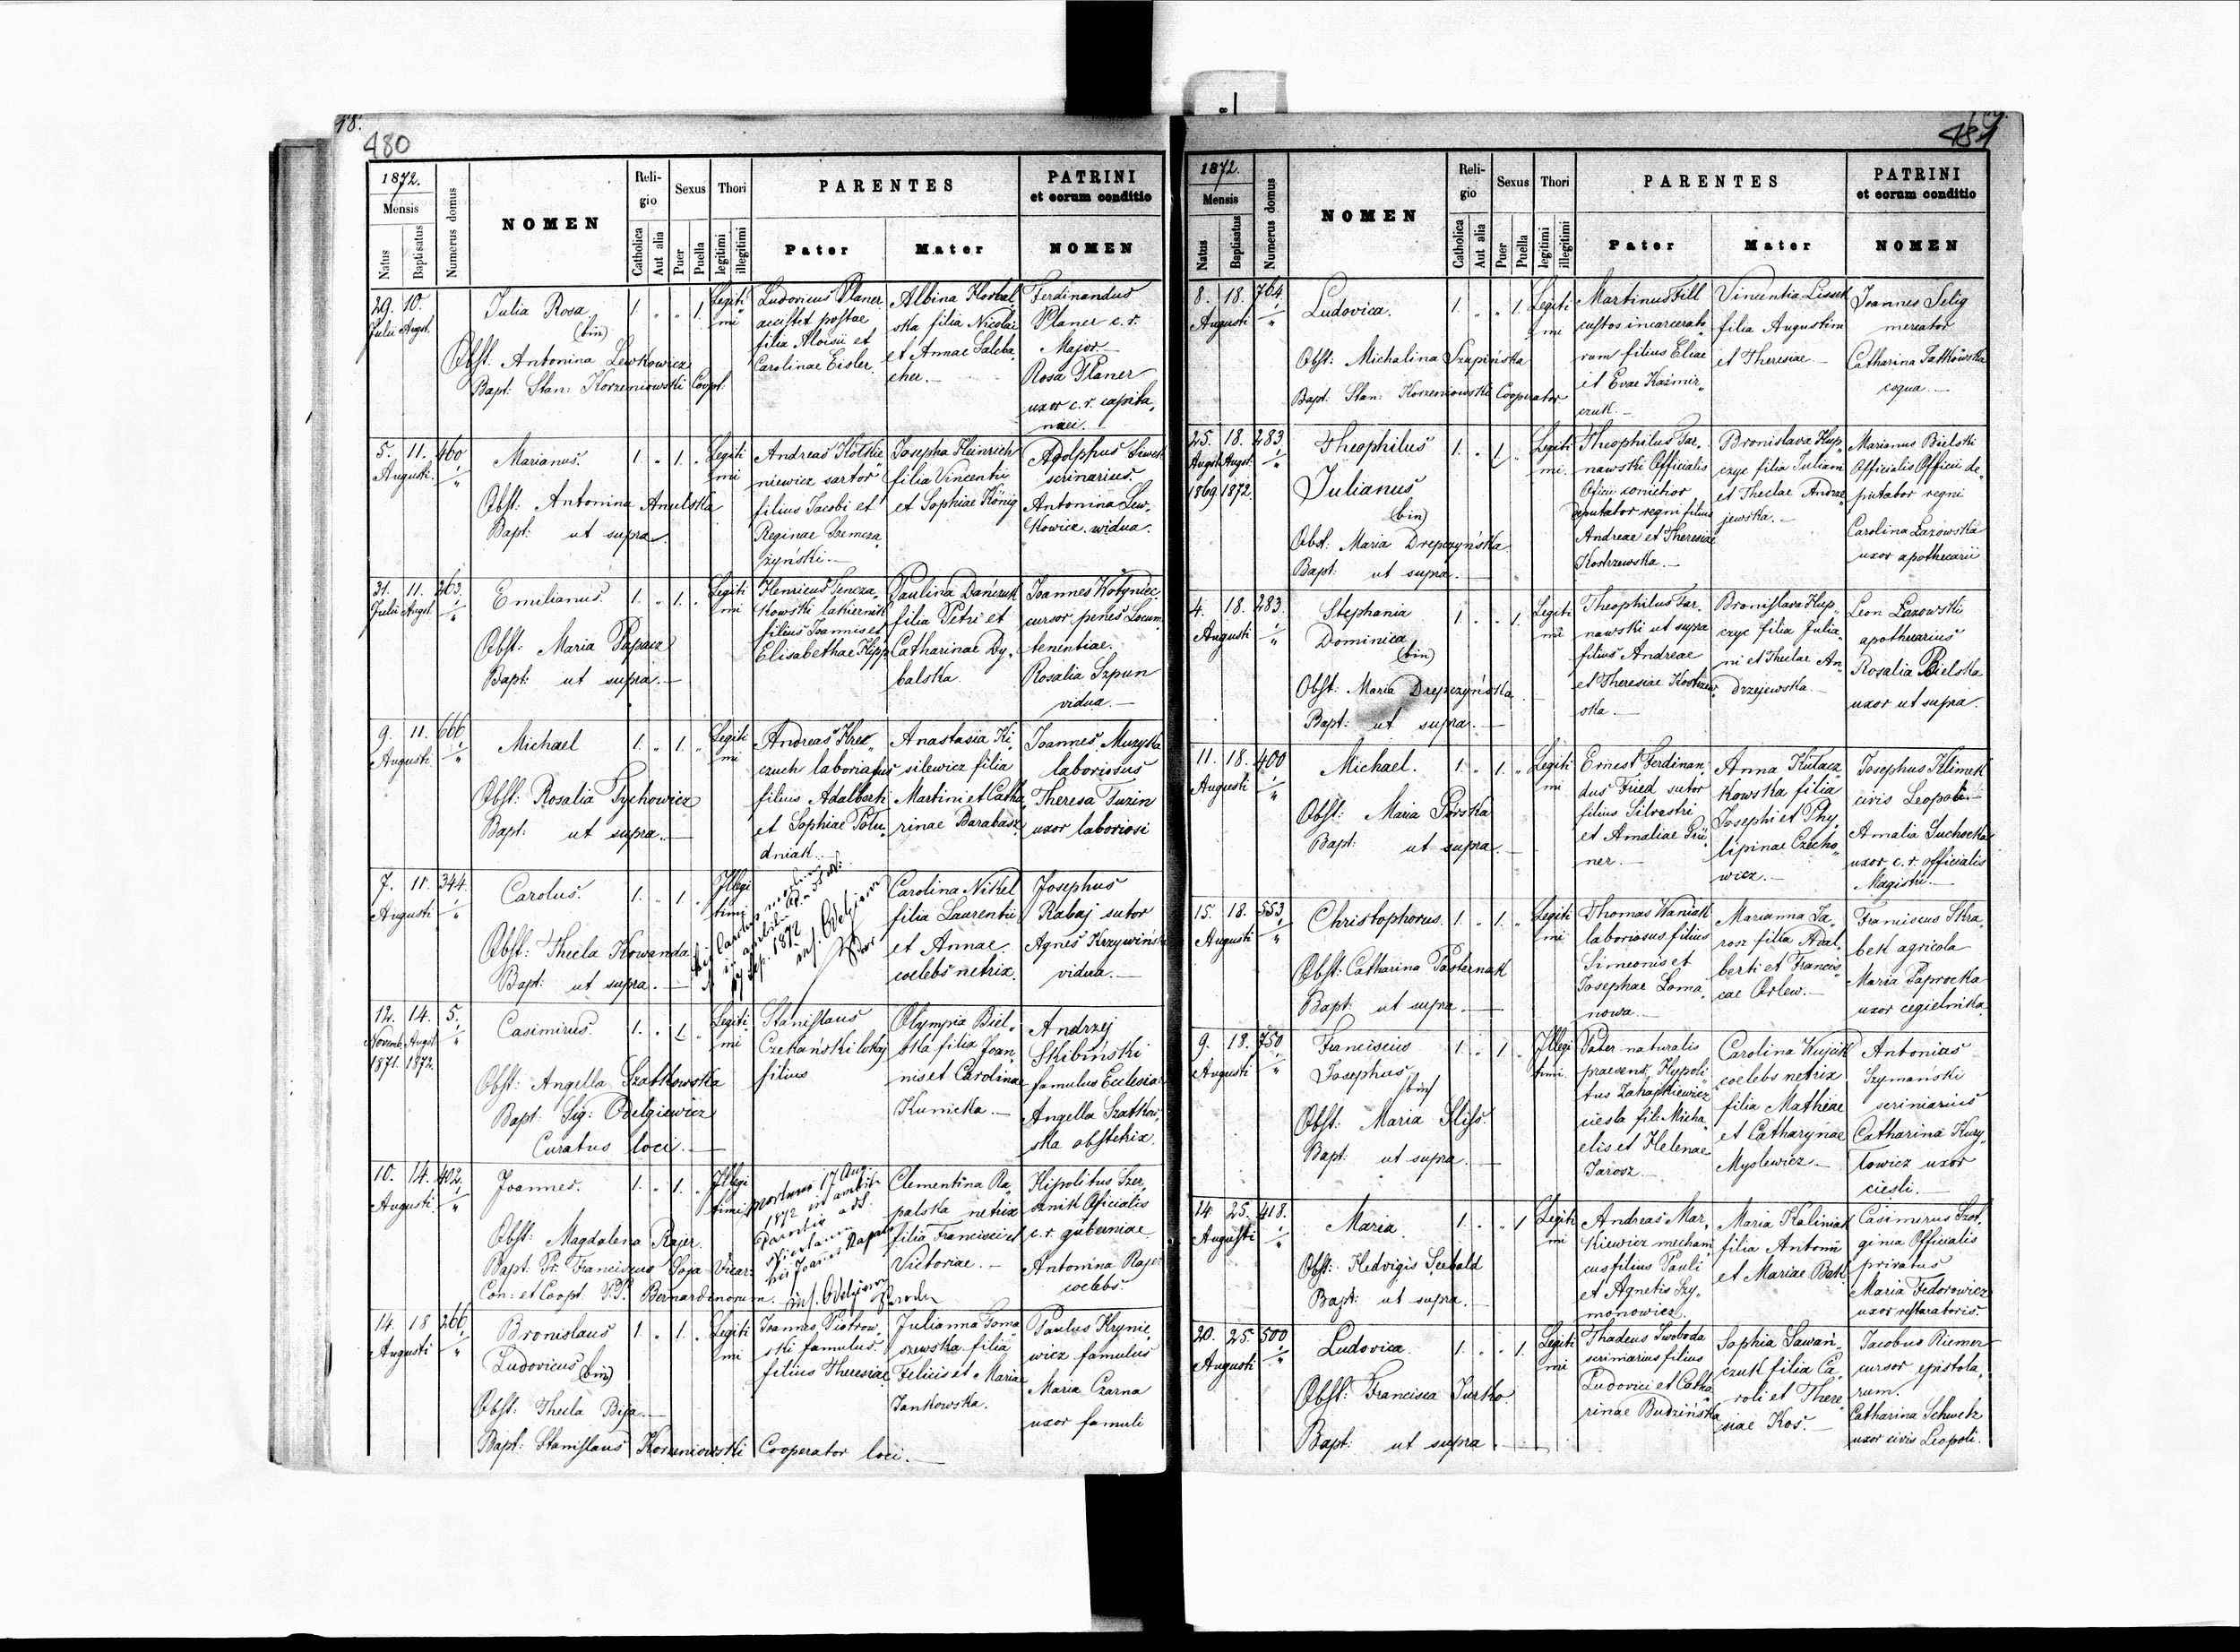 18.
480
1872.
Mensis
Natus
Baptisatus
Numerus domus
NOMEN
Reli-
gio
Catholica
Aut alia
Sexus
Puer
Puella
Thori
legitimi
illegitimi
PARENTES
Pater
Mater
PATRINI
et eorum conditio
NOMEN
29. 10.
Julii Augst.
Julia Rosa
(bin)
Obst. Antonina Lewkowicz
Bapt. Stan: Korzeniowski Coopt.
1. " " 1.
Legiti
mi
Ludovicus Planer
accistet postae
filia Aloisii et
Carolinae Eisler.
Albina
ska filia Nicolai
et Annae
cher.—
Ferdinandus
Planer c. r.
Major.—
Rosa Planer
uxor c. r. capita,
naei.—
5. 11. 460
Augusti.
Marianus.
Obst: Antonina Anulska
Bapt: ut supra.
1. " 1. "
Legiti
mi
Andreas
niewicz sartor
filius Jacobi et
Reginae
Josepha Heinrich
filia Vincentii
et Sophiae König
Adolphus Siwek
scrinarius.
Antonina Lew,
kowicz. widua.
31. 11. 263.
Julii Augst.
Emilianus.
Obst: Maria Papacz
Bapt: ut supra.—
1. " 1. "
Legiti
mi
Henricus Tencza,
kowski lakiernik
filius Joannis et
Elisabethae Hipp
Paulina Dańczuk
filia Petri et
Catharinae Dy,
balska
Joannes Kotyniec,
cursor penes Locum,
tenentiae.
Rosalia Szpun
vidua.—
9. 11. 666.
Augusti.
Michael
Obst: Rosalia Tychowicz
Bapt: ut supra.—
1. " 1. "
Legiti
mi
Andreas Hrec,
czuch laboriosus
filius Adalberti
et Sophiae Polu,
dniak.—
Anastasia Ki,
silewicz filia
Martini et Catha,
rinae Barabasz
Joannes Muzyka
laboriosus
Theresa Tuzin
uxor laboriosi
7. 11. 344.
Augusti
Carolus.
Obst: Thecla Kowanda
Bapt: ut supra.—
1. " 1. "
Illegi
timi
1872
Carolina Nikel
filia Laurentii
et Annae
coelebs netrix.
Josephus
Rabaj sutor
Agnes Krzywińska
vidua.—
12. 14. 5.
Novemb. Augst.
1871. 1872.
Casimirus.
Obst: Angella Szatkowska
Bapt: Sig: Odelgiewicz
Curatus loci.—
1. " 1. "
Legiti
mi
Stanislaus
Czekański lokaj
filius
Olympia Biel,
ska filia Joan,
nis et Carolinae
Kunicka.—
Andrzej
Skibiński
famulus Ecclesiae
Angella Szatkow,
ska obstetrix.
10. 14. 402.
Augusti.
Joannes.
Obst: Magdalena Rajer
Bapt: Fr. Franciscus Soja Vicar:
Con: et Coopt. P.P. Bernardinorum.
1. " 1. "
Illegi
timi
mortuus 17 Aug
1872
Clementina Ra,
palska netrix
filia Francisci et
Victoriae.—
Hipolitus Szer,
sznik Oficialis
c. r. guberniae
Antonina Rajer
coelebs.
14. 18 266.
Augusti
Bronislaus
Ludovicus (bin)
Obst: Thecla Biga.—
Bapt: Stanislaus Korzeniowski Cooperator loci.—
1. " 1. "
Legiti
mi
Joannes Piotrow,
ski famulus
filius Theresiae
Julianna Toma,
szewska filia
Felicis et Mariae
Jankowska.
Paulus Krynie,
wicz famulus
Maria Czarna
uxor famuli
481
1872.
Mensis
Natus
Baptisatus
Numerus domus
NOMEN
Reli-
gio
Catholica
Aut alia
Sexus
Puer
Puella
Thori
legitimi
illegitimi
PARENTES
Pater
Mater
PATRINI
et eorum conditio
NOMEN
8. 18. 764.
Augusti
Ludovica.
Obst: Michalina Szupińska
Bapt: Stan: Korzeniowski Cooperator
1. " " 1.
Legiti
mi
Martinus Fill
custos incarcerato,
rum filius Eliae
et Evae Kaźmir,
czuk.—
Vincentia Lissek
filia Augustini
et Theresiae—
Joannes Selig
mercator
Catharina Sałkowska
coqua.—
25. 18. 283
Augst. Augst.
1869. 1872.
Theophilus
Julianus
(bin)
Obst: Maria Drepczyńska
Bapt: ut supra.—
1. " 1. "
Legiti
mi.
Theophilus Tar,
nawski Officialis
Oficii
deputator regni filius
Andreae et Theresiae
Kostrzewska.—
Bronislava Hup,
czyc filia Juliani
et Theclae Andrze
jewska.—
Marianus Bielski
Officialis Officii de,
putator regni
Carolina Łazowska
uxor apothecarii
4. 18. 283.
Augusti
Stephania
Dominica
(bin)
Obst: Maria Drepczyńska
Bapt: ut supra.—
1 " " 1.
Legiti
mi
Theophilus Tar,
nawski ut supra
filius Andreae
et Theresiae Kostrzew,
ska.—
Bronislava Hup,
czyc filia Julia,
ni et Theclae An,
drzejewska.—
Leon Łazowski
apothecarius
Rosalia Bielska
uxor ut supra.
11. 18. 400
Augusti
Michael.
Obst: Maria Górska
Bapt: ut supra.—
1. " 1. "
Legiti
mi
Ernest Ferdinan,
dus Fried sutor
filius Silvestri
et Amaliae Grü,
ner.—
Anna Kułacz,
kowska filia
Josephi et Phy,
lipinae Czecho,
wicz.—
Josephus Klimek
civis Leopoli.—
Amalia Suchocka
uxor c. r. officialis
Magistri.—
15. 18. 553.
Augusti
Christophorus.
Obst: Catharina Pasternak
Bapt: ut supra.—
1. " 1. "
Legiti
mi
Thomas Waniak
laboriosus filius
Simeonis et
Josephae Loma,
nowa.—
Marianna Ja,
rosz filia Adal,
berti et Francis,
cae Orlew.—
Franciscus Skra,
bek agricola
Maria Paprocka
uxor cegielnika.
9. 18. 750.
Augusti
Franciscus
Josephus
(bin)
Obst: Maria Sliss.
Bapt: ut supra.—
1. " 1 "
Illegi
timi.
Pater naturalis
praesens Hypoli
tus Zahajkiewicz
ciesla fili: Micha
elis et Helenae
Jarosz.—
Carolina Wujcik
coelebs netrix
filia Mathiae
et Catharynae
Myslewicz.—
Antonius
Szymański
scriniarius
Catharina Kury,
łowicz uxor
ciesli.—
14. 25. 418.
Augusti
Maria.
Obst: Hedvigis Seebald
Bapt: ut supra.—
1. " " 1
Legiti
mi
Andreas Mar,
kiewicz mechani,
cus filius Pauli
et Agnetis Szy,
monowicz.
Maria Kaliniak
filia Antonii
et Mariae Bak.
Casimirus Szot,
ginia Officialis
privatus
Maria Fedorowicz
uxor restaratoris.
20. 25. 500
Augusti
Ludovica.
Obst: Francisca Jurko.
Bapt: ut supra.—
1. " " 1.
Legiti
mi
Thadeus Swoboda
scrinarius filius
Ludovici et Catha,
rinae Budzińska
Sophia Sawań,
czuk filia Ca,
roli et There,
siae Kos.—
Jacobus Riemer
cursor epistola,
rum.
Catharina Schwetz
uxor civis Leopoli.